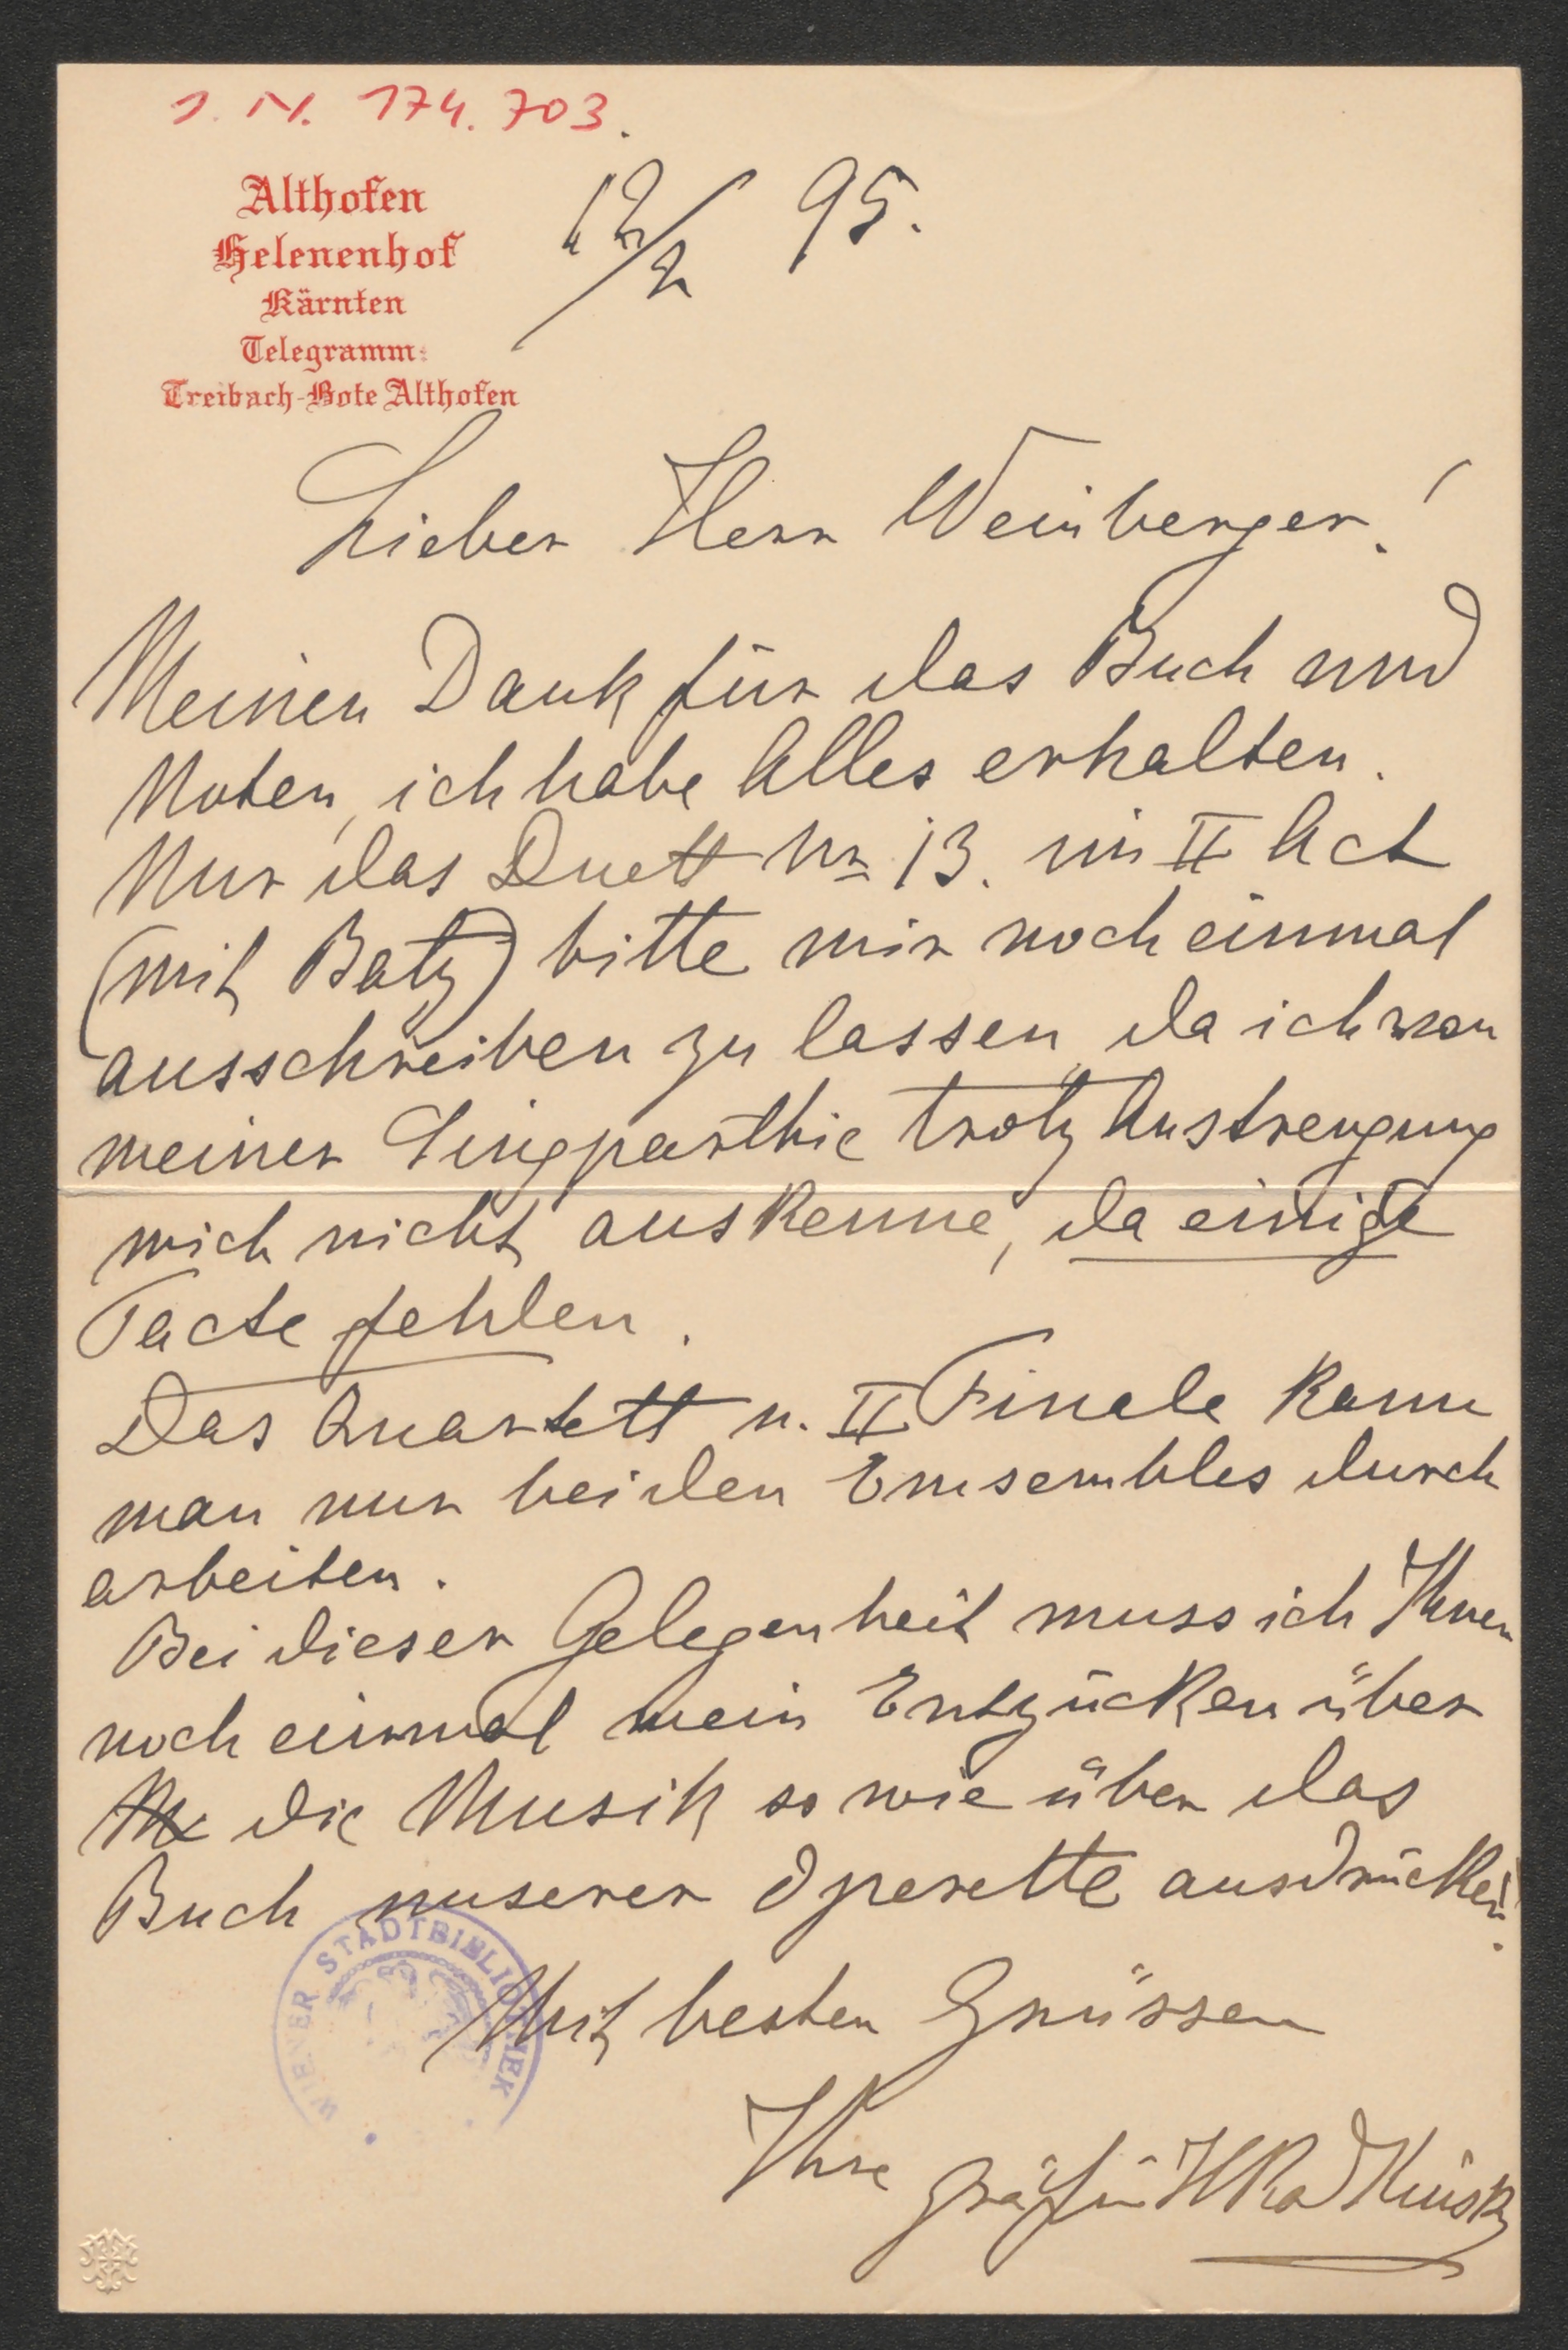 J. N. 174.703.
Althofen
Helenenhof
Kärnten
Telegramm:
Treibach-Bote Althofen
12/2 95.
Lieber Herr Weinberger!
Meinen Dank für das Buch und
Noten, ich habe Alles erhalten.
Nur das Duett Nr 13. im II Act
(mit Batz) bitte mir noch einmal
ausschreiben zu lassen, da ich von
meiner Singparthie trotz Anstrengung
mich nicht auskenne, da einige
Tacte fehlen.
Das Quartett u. II Finale kann
man nur bei den Ensembles durch
arbeiten.
Bei dieser Gelegenheit muss ich Ihnen
noch einmal mein Entzücken über
die Musik so wie über das
Buch unserer Operette ausdrücken.
Mit besten Grüssen
Ihre Gräfin Kinsky
WIENER STADTBIBLIOTHEK